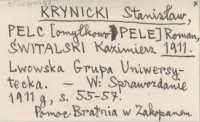 KRYNICKI Stanisław,
PELC [omyłkowo PELE] Roman,
ŚWITALSKI Kazimierz 1911.
Lwowska Grupa Uniwersy-
tecka. – W: Sprawozdanie
1911 g, s. 55-57.
Pomoc Bratnia w Zakopanem